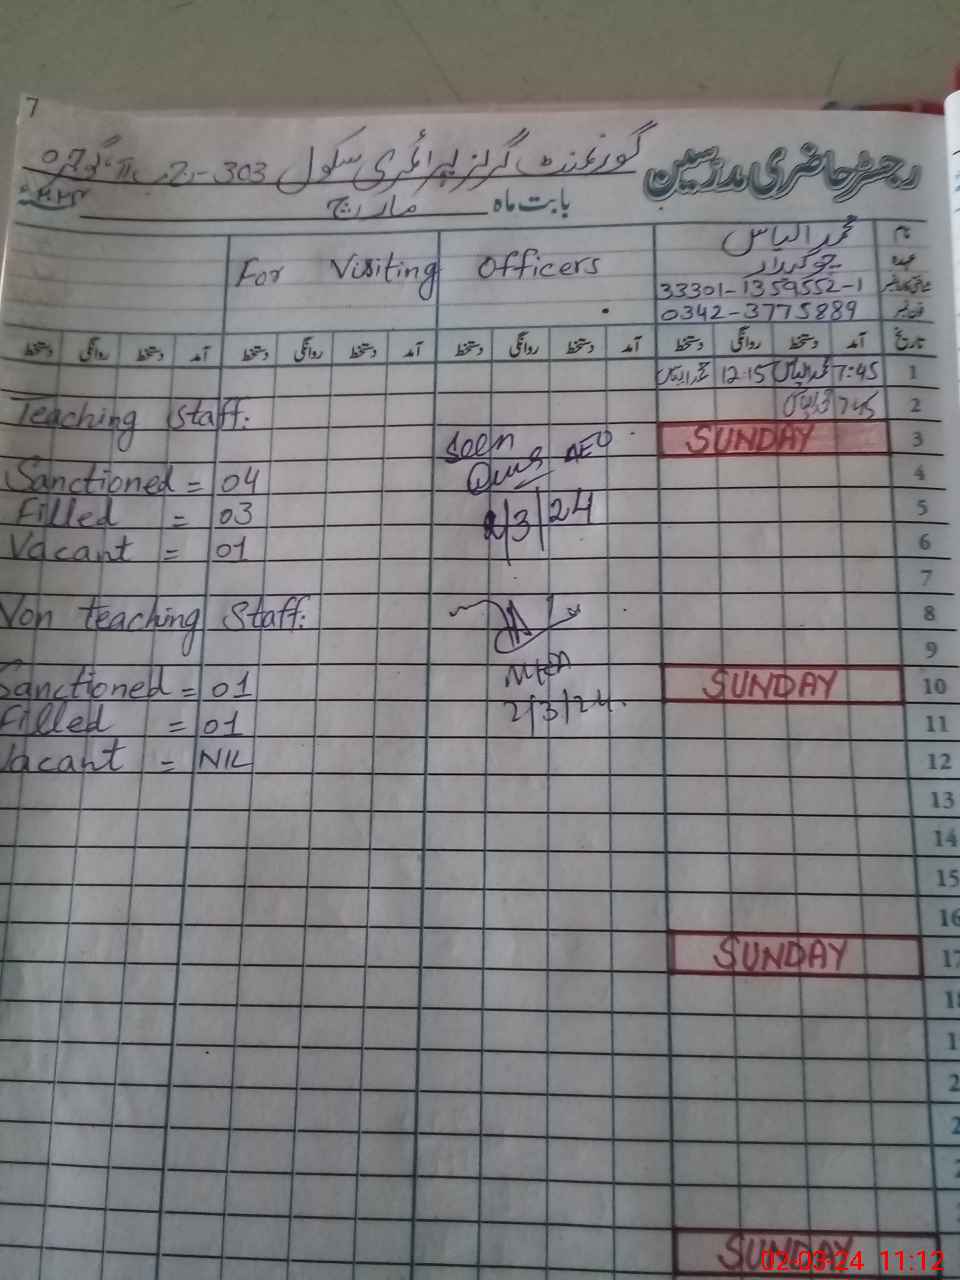 7
رجسٹر حاضری مدرسین گورنمنٹ گرلز پرائمری سکول 303
بابت ماہ مارچ
نام محمد الیاس
عہدہ چوکیدار
33301-1359552-1
0342-3775889
For Visiting Officers
تاریخ آمد دستخط روانگی دستخط آمد دستخط روانگی دستخط آمد دستخط روانگی دستخط آمد دستخط روانگی دستخط
1 7:45 محمد الیاس 12:15 محمد الیاس
2 7:45
3 SUNDAY
4
5
6
7
8
9
10 SUNDAY
11
12
13
14
15
16
17 SUNDAY
SUNDAY
Teaching Staff:
Sanctioned = 04
Filled = 03
Vacant = 01
Non teaching Staff:
Sanctioned = 01
Filled = 01
Vacant = NIL
Seen
AEO
2/3/24
2/3/24.
02-03-24 11:12